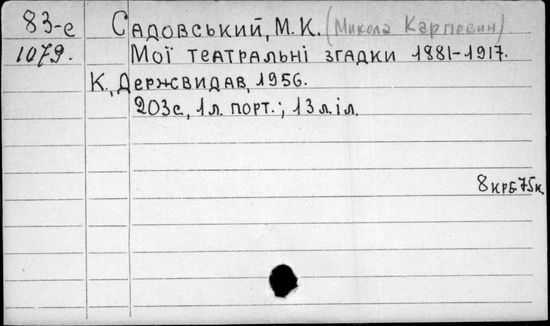 83-е Садовський, М.К. (Микола Карпович)
1079. Мої театральні згадки 1881-1917.
К., Держвидав, 1956.
203с., 1л. порт.; 13л.іл.
8крб.75к.